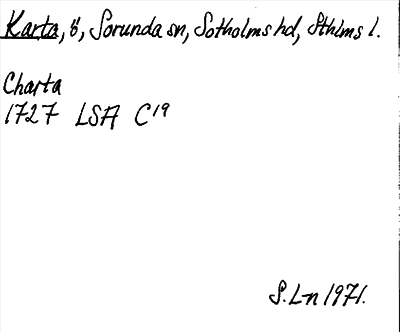 Karta, ö, Sorunda sn, Sotholms hd, Sthlms l.
Charta
1727 LSA C19
S. Ln 1971.